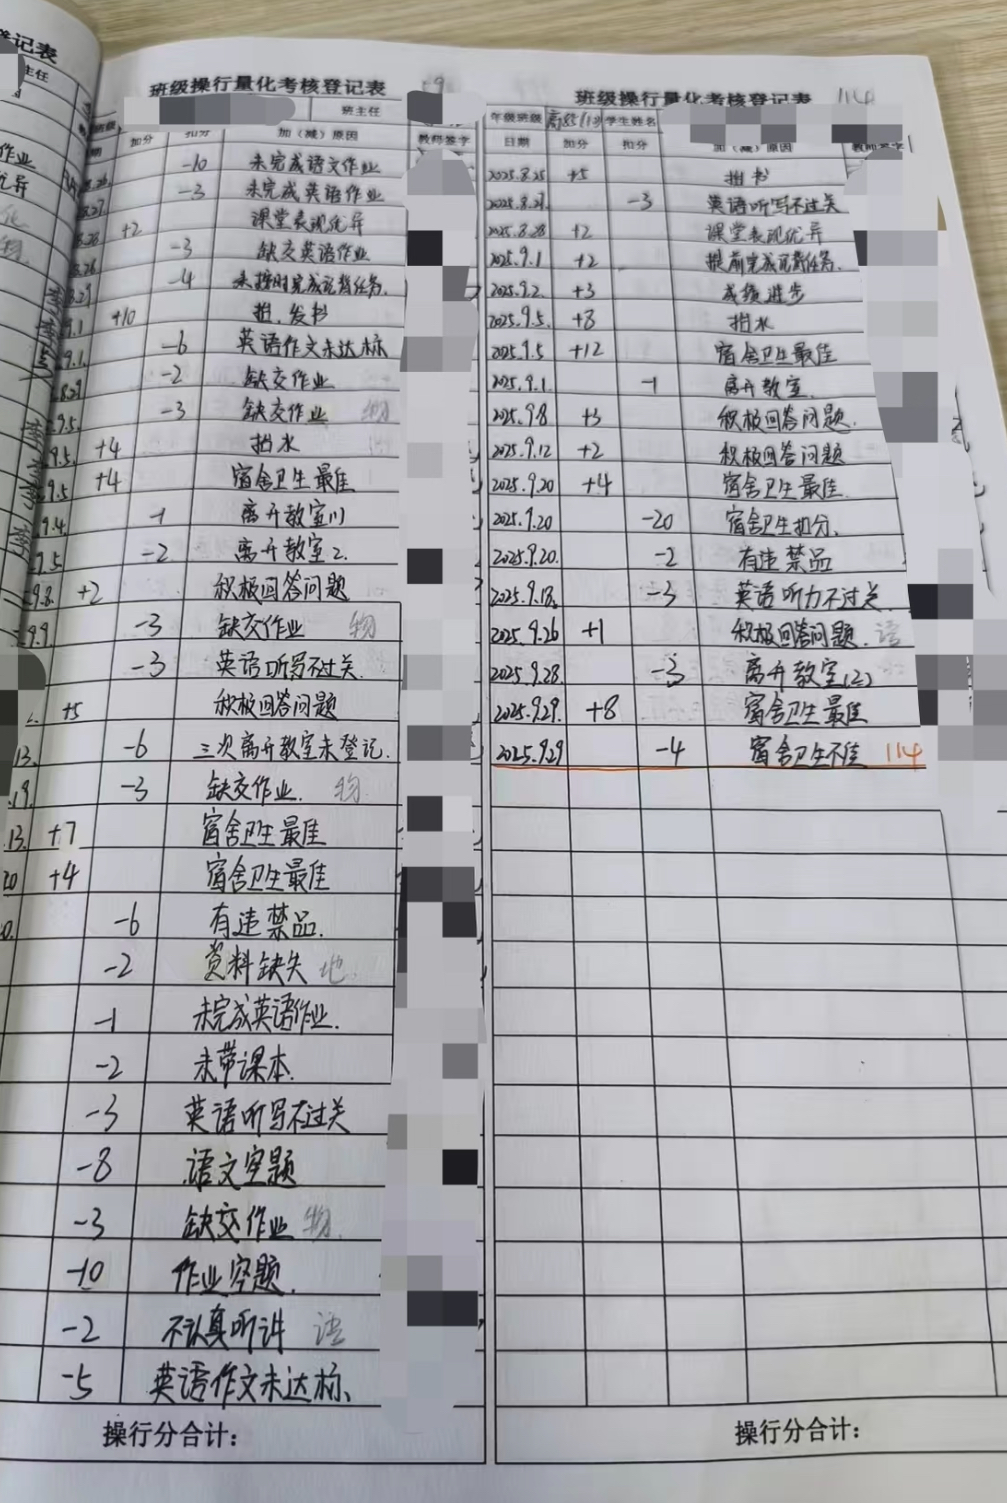 记表
主任
作业
优异
班级操行量化考核登记表
班主任
加分 扣分 加（减）原因 教师签字
-10 未完成语文作业
-3 未完成英语作业
+2 课堂表现优异
-3 缺交英语作业
-4 未按时完成记背任务
+10 担，发书
9.1. -6 英语作文未达标
8.29 -2 缺交作业
9.5. -3 缺交作业 物
9.5. +4 担水
9.5 +4 宿舍卫生最佳
9.4. -1 离开教室1)
9.5 -2 离开教室2.
9.8. +2 积极回答问题
9.9. -3 缺交作业 物
-3 英语听写不过关.
+5 积极回答问题
13. -6 三次离开教室未登记.
19. -3 缺交作业. 物
13. +7 宿舍卫生最佳
20 +4 宿舍卫生最佳
-6 有违禁品.
-2 资料缺失 地
-1 未完成英语作业.
-2 未带课本.
-3 英语听写不过关
-8 语文空题
-3 缺交作业 物.
-10 作业空题.
-2 不认真听讲 语
-5 英语作文未达标、
操行分合计：
班级操行量化考核登记表 114
年级班级 学生姓名
日期 加分 扣分 加（减）原因 教师签字
2025.8.25 +5 担书
2025.8.27. -3 英语听写不过关
2025.8.28 +2 课堂表现优异
2025.9.1 +2 提前完成记背任务.
2025.9.2. +3 成绩进步
2025.9.5. +8 担水
2025.9.5 +12 宿舍卫生最佳
2025.9.1. -1 离开教室.
2025.9.8 +3 积极回答问题.
2025.9.12 +2 积极回答问题
2025.9.20 +4 宿舍卫生最佳.
2025.9.20 -20 宿舍卫生扣分.
2025.9.20. -2 有违禁品
2025.9.18. -3 英语听力不过关.
2025.9.26 +1 积极回答问题. 语
2025.9.28. -3 离开教室(2)
2025.9.29. +8 宿舍卫生最佳
2025.9.29 -4 宿舍卫生不佳 114
操行分合计：